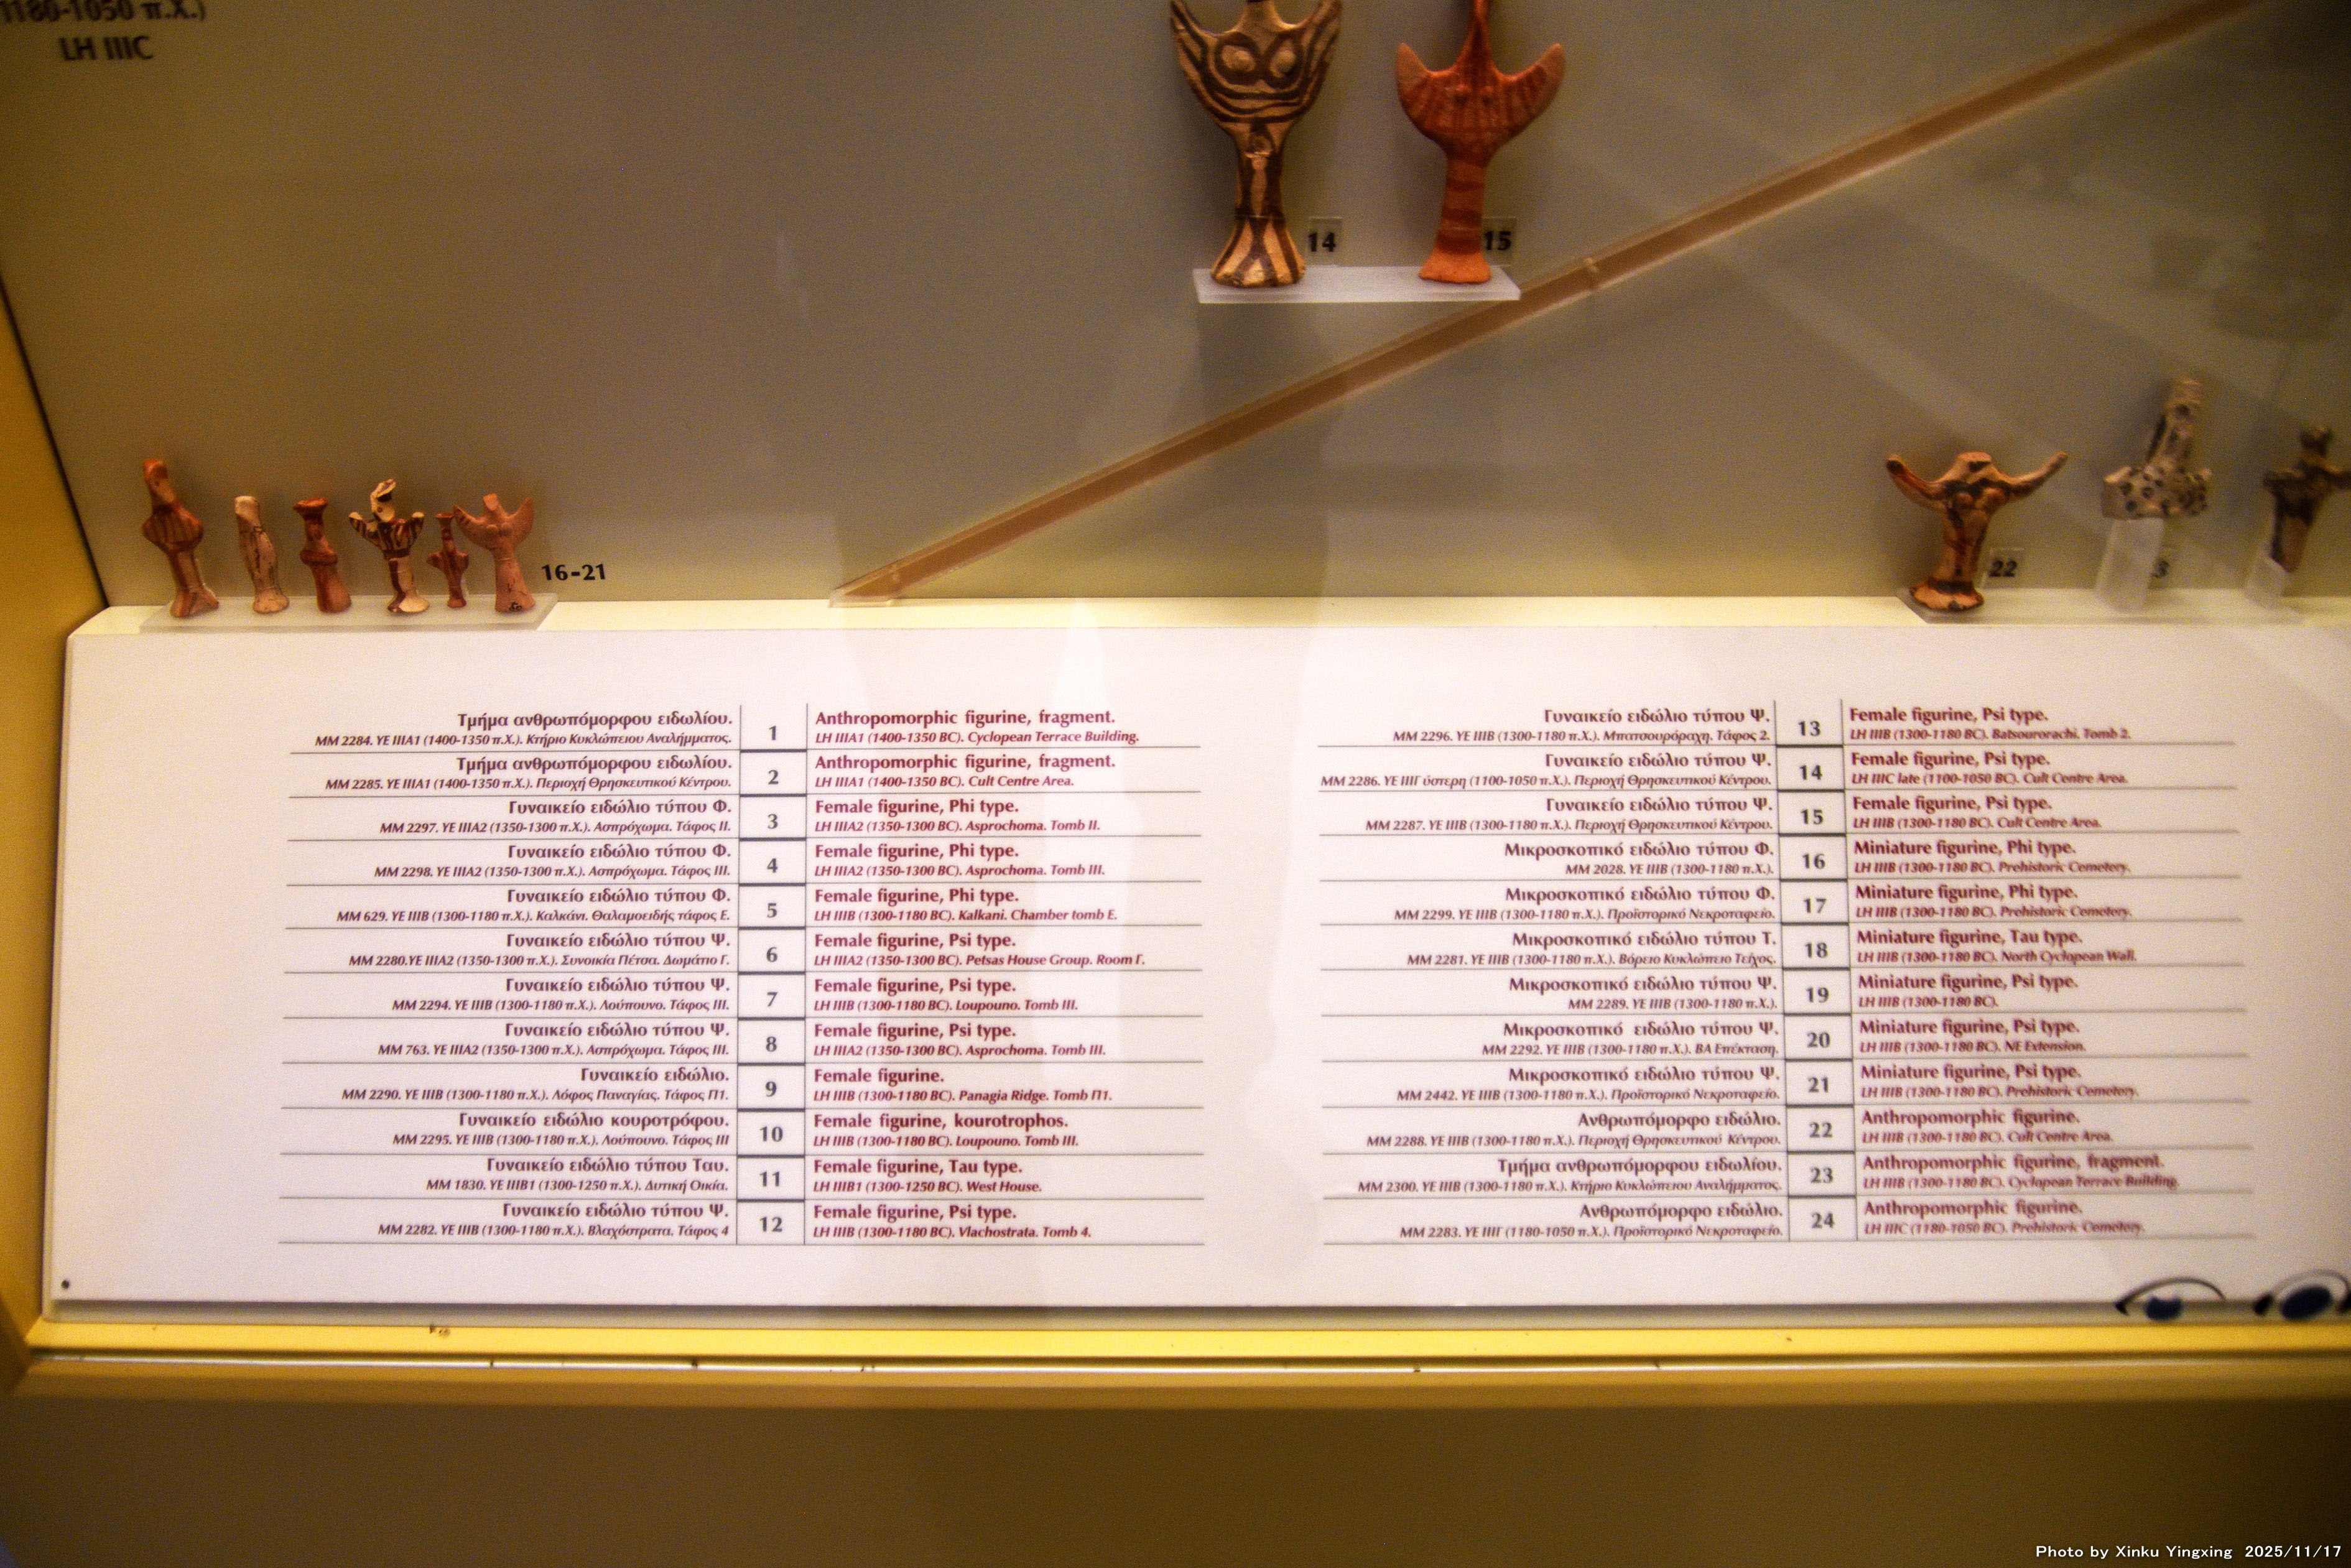 1180-1050 π.Χ.)
LH IIIC
14
15
16-21
22
3
Τμήμα ανθρωπόμορφου ειδωλίου.
ΜΜ 2284. ΥΕ ΙΙΙΑ1 (1400-1350 π.Χ.). Κτήριο Κυκλώπειου Αναλήμματος.
1
Anthropomorphic figurine, fragment.
LH IIIA1 (1400-1350 BC). Cyclopean Terrace Building.
Τμήμα ανθρωπόμορφου ειδωλίου.
ΜΜ 2285. ΥΕ ΙΙΙΑ1 (1400-1350 π.Χ.). Περιοχή Θρησκευτικού Κέντρου.
2
Anthropomorphic figurine, fragment.
LH IIIA1 (1400-1350 BC). Cult Centre Area.
Γυναικείο ειδώλιο τύπου Φ.
ΜΜ 2297. ΥΕ ΙΙΙΑ2 (1350-1300 π.Χ.). Ασπρόχωμα. Τάφος ΙΙ.
3
Female figurine, Phi type.
LH IIIA2 (1350-1300 BC). Asprochoma. Tomb II.
Γυναικείο ειδώλιο τύπου Φ.
ΜΜ 2298. ΥΕ ΙΙΙΑ2 (1350-1300 π.Χ.). Ασπρόχωμα. Τάφος ΙΙΙ.
4
Female figurine, Phi type.
LH IIIA2 (1350-1300 BC). Asprochoma. Tomb III.
Γυναικείο ειδώλιο τύπου Φ.
ΜΜ 629. ΥΕ ΙΙΙΒ (1300-1180 π.Χ.). Καλκάνι. Θαλαμοειδής τάφος Ε.
5
Female figurine, Phi type.
LH IIIB (1300-1180 BC). Kalkani. Chamber tomb E.
Γυναικείο ειδώλιο τύπου Ψ.
ΜΜ 2280.ΥΕ ΙΙΙΑ2 (1350-1300 π.Χ.). Συνοικία Πέτσα. Δωμάτιο Γ.
6
Female figurine, Psi type.
LH IIIA2 (1350-1300 BC). Petsas House Group. Room Γ.
Γυναικείο ειδώλιο τύπου Ψ.
ΜΜ 2294. ΥΕ ΙΙΙΒ (1300-1180 π.Χ.). Λούπουνο. Τάφος ΙΙΙ.
7
Female figurine, Psi type.
LH IIIB (1300-1180 BC). Loupouno. Tomb III.
Γυναικείο ειδώλιο τύπου Ψ.
ΜΜ 763. ΥΕ ΙΙΙΑ2 (1350-1300 π.Χ.). Ασπρόχωμα. Τάφος ΙΙΙ.
8
Female figurine, Psi type.
LH IIIA2 (1350-1300 BC). Asprochoma. Tomb III.
Γυναικείο ειδώλιο.
ΜΜ 2290. ΥΕ ΙΙΙΒ (1300-1180 π.Χ.). Λόφος Παναγίας. Τάφος Π1.
9
Female figurine.
LH IIIB (1300-1180 BC). Panagia Ridge. Tomb Π1.
Γυναικείο ειδώλιο κουροτρόφου.
ΜΜ 2295. ΥΕ ΙΙΙΒ (1300-1180 π.Χ.). Λούπουνο. Τάφος ΙΙΙ
10
Female figurine, kourotrophos.
LH IIIB (1300-1180 BC). Loupouno. Tomb III.
Γυναικείο ειδώλιο τύπου Ταυ.
ΜΜ 1830. ΥΕ ΙΙΙΒ1 (1300-1250 π.Χ.). Δυτική Οικία.
11
Female figurine, Tau type.
LH IIIB1 (1300-1250 BC). West House.
Γυναικείο ειδώλιο τύπου Ψ.
ΜΜ 2282. ΥΕ ΙΙΙΒ (1300-1180 π.Χ.). Βλαχόστρατα. Τάφος 4
12
Female figurine, Psi type.
LH IIIB (1300-1180 BC). Vlachostrata. Tomb 4.
Γυναικείο ειδώλιο τύπου Ψ.
ΜΜ 2296. ΥΕ ΙΙΙΒ (1300-1180 π.Χ.). Μπατσουρόραχη. Τάφος 2.
13
Female figurine, Psi type.
LH IIIB (1300-1180 BC). Batsourorachi. Tomb 2.
Γυναικείο ειδώλιο τύπου Ψ.
ΜΜ 2286. ΥΕ ΙΙΙΓ ύστερη (1100-1050 π.Χ.). Περιοχή Θρησκευτικού Κέντρου.
14
Female figurine, Psi type.
LH IIIC late (1100-1050 BC). Cult Centre Area.
Γυναικείο ειδώλιο τύπου Ψ.
ΜΜ 2287. ΥΕ ΙΙΙΒ (1300-1180 π.Χ.). Περιοχή Θρησκευτικού Κέντρου.
15
Female figurine, Psi type.
LH IIIB (1300-1180 BC). Cult Centre Area.
Μικροσκοπικό ειδώλιο τύπου Φ.
ΜΜ 2028. ΥΕ ΙΙΙΒ (1300-1180 π.Χ.).
16
Miniature figurine, Phi type.
LH IIIB (1300-1180 BC). Prehistoric Cemetery.
Μικροσκοπικό ειδώλιο τύπου Φ.
ΜΜ 2299. ΥΕ ΙΙΙΒ (1300-1180 π.Χ.). Προϊστορικό Νεκροταφείο.
17
Miniature figurine, Phi type.
LH IIIB (1300-1180 BC). Prehistoric Cemetery.
Μικροσκοπικό ειδώλιο τύπου Τ.
ΜΜ 2281. ΥΕ ΙΙΙΒ (1300-1180 π.Χ.). Βόρειο Κυκλώπειο Τείχος.
18
Miniature figurine, Tau type.
LH IIIB (1300-1180 BC). North Cyclopean Wall.
Μικροσκοπικό ειδώλιο τύπου Ψ.
ΜΜ 2289. ΥΕ ΙΙΙΒ (1300-1180 π.Χ.).
19
Miniature figurine, Psi type.
LH IIIB (1300-1180 BC).
Μικροσκοπικό ειδώλιο τύπου Ψ.
ΜΜ 2292. ΥΕ ΙΙΙΒ (1300-1180 π.Χ.). ΒΑ Επέκταση.
20
Miniature figurine, Psi type.
LH IIIB (1300-1180 BC). NE Extension.
Μικροσκοπικό ειδώλιο τύπου Ψ.
ΜΜ 2442. ΥΕ ΙΙΙΒ (1300-1180 π.Χ.). Προϊστορικό Νεκροταφείο.
21
Miniature figurine, Psi type.
LH IIIB (1300-1180 BC). Prehistoric Cemetery.
Ανθρωπόμορφο ειδώλιο.
ΜΜ 2288. ΥΕ ΙΙΙΒ (1300-1180 π.Χ.). Περιοχή Θρησκευτικού Κέντρου.
22
Anthropomorphic figurine.
LH IIIB (1300-1180 BC). Cult Centre Area.
Τμήμα ανθρωπόμορφου ειδωλίου.
ΜΜ 2300. ΥΕ ΙΙΙΒ (1300-1180 π.Χ.). Κτήριο Κυκλώπειου Αναλήμματος.
23
Anthropomorphic figurine, fragment.
LH IIIB (1300-1180 BC). Cyclopean Terrace Building.
Ανθρωπόμορφο ειδώλιο.
ΜΜ 2283. ΥΕ ΙΙΙΓ (1180-1050 π.Χ.). Προϊστορικό Νεκροταφείο.
24
Anthropomorphic figurine.
LH IIIC (1180-1050 BC). Prehistoric Cemetery.
Photo by Xinku Yingxing 2025/11/17